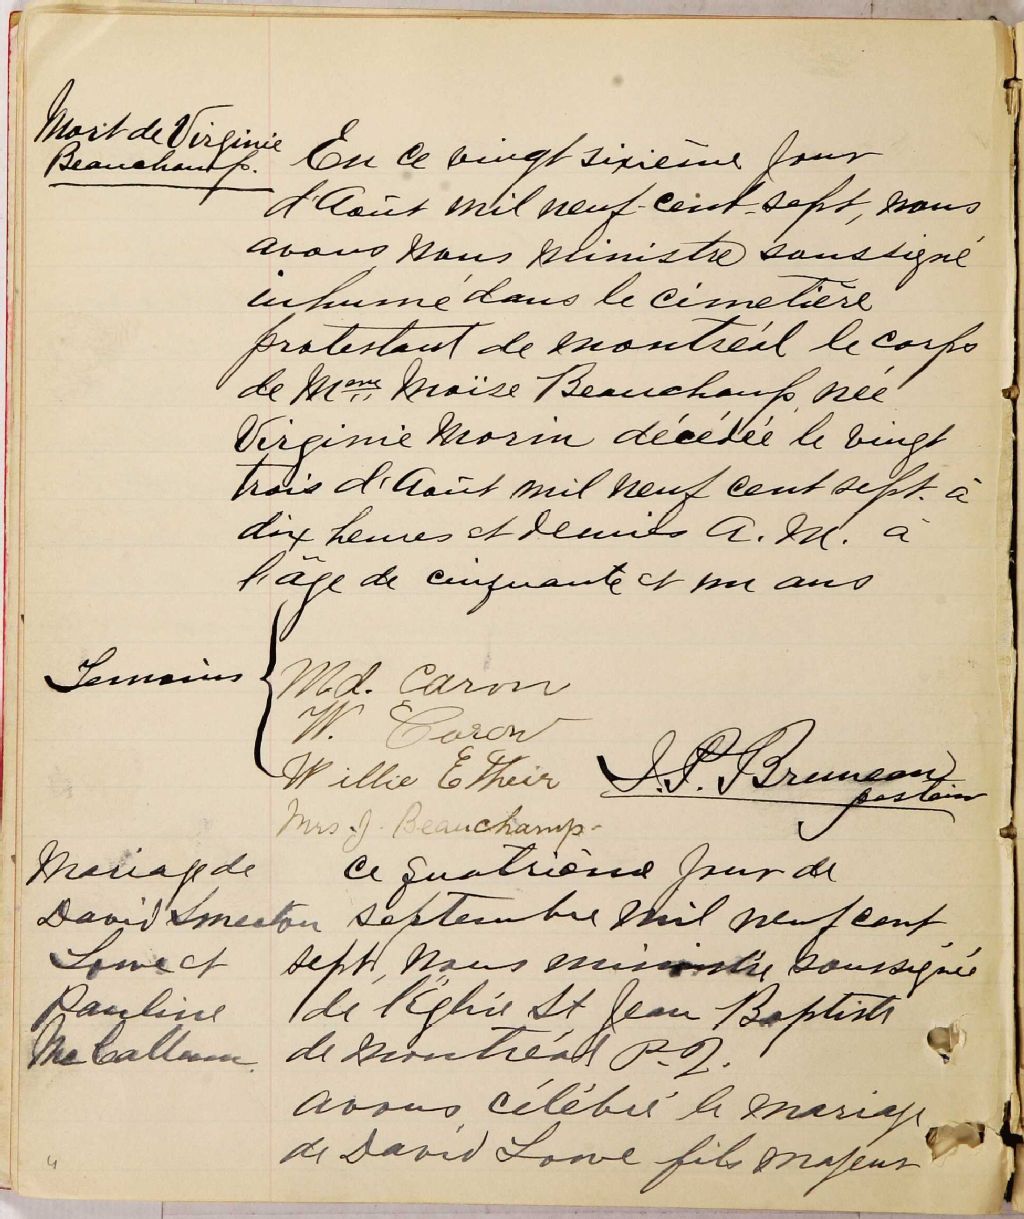 Mort de Virginie
Beauchamp.
En ce vingt sixième jour
d'Août mil neuf-cent-sept, nous
avons nous ministre soussigné
inhumé dans le cimetière
protestant de Montréal le corps
de Mme Moïse Beauchamp née
Virginie Morin décédée le vingt
trois d'Août mil neuf cent sept. à
dix heures et demies A. M. à
l'âge de cinquante et un ans
Temoins
Md. Caron
W. Caron
Willie Etheir
J. P. Bruneau
pasteur
Mrs. J. Beauchamp-
Mariage de
David Smeaton
Lowe et
Pauline
McCallum.
ce quatrième jour de
septembre mil neuf cent
sept, nous ministre soussignée
de l'Églsie St Jean Baptiste
de Montréal P. Q.
avons célébré le mariage
de David Lowe fils majeur